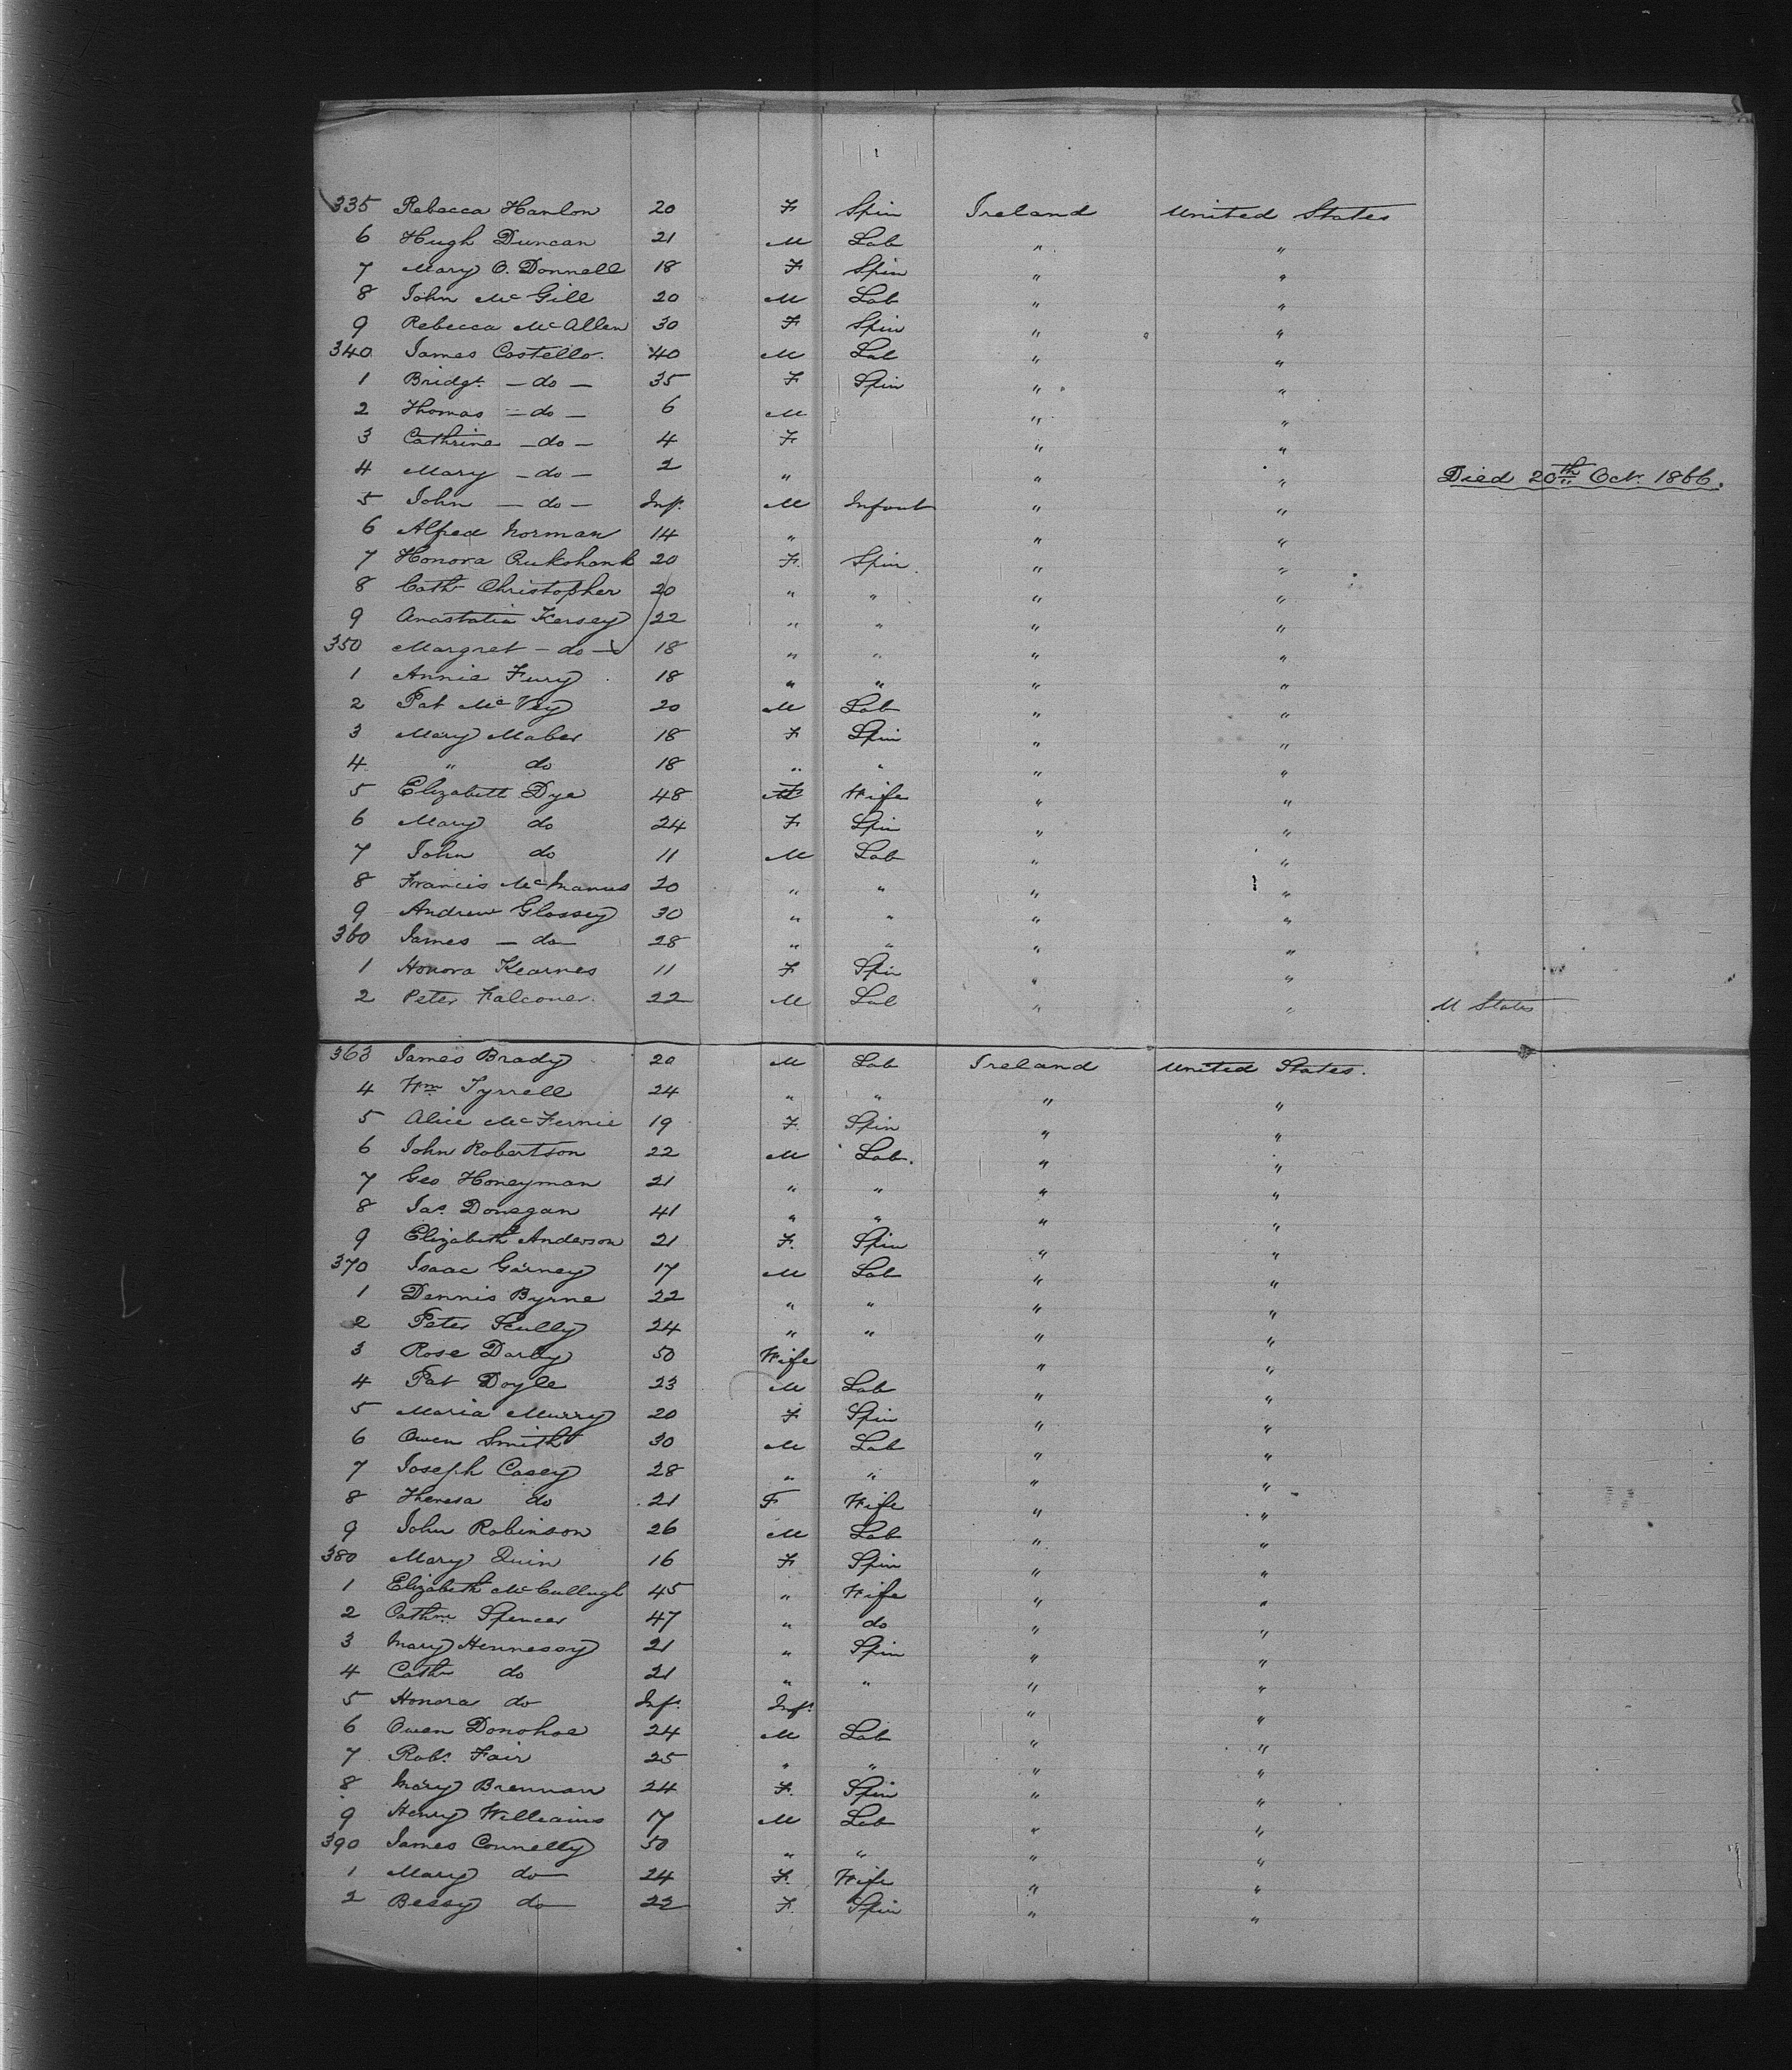 335 Rebecca Hanlon 20 F Spin Ireland United States
6 Hugh Duncan 21 M Lab " "
7 Mary O. Donnell 18 F Spin " "
8 John McGill 20 M Lab " "
9 Rebecca McAllen 30 F Spin " "
340 James Costello 40 M Lab " "
1 Bridgt. — do — 35 F Spin " "
2 Thomas — do — 6 M " "
3 Cathrine — do — 4 F " "
4 Mary — do — 2 " " " Died 20th Oct. 1866.
5 John — do — Inf. M Infant " "
6 Alfred Norman 14 " " "
7 Honora 20 F. Spin " "
8 Cath Christopher 20 " " " "
9 Anastatia Kersey 22 " " " "
350 Margret — do — 18 " " " "
1 Annie Fury 18 " " " "
2 Pat McVey 20 M Lab " "
3 Mary Maber 18 F Spin " "
4 " do 18 " " " "
5 Elizabeth Dye 48 Wife " "
6 Mary do 24 F Spin " "
7 John do 11 M Lab " "
8 Francis McManus 20 " " " "
9 Andrew Glossey 30 " " " "
360 James — do — 28 " " " "
1 Honora Kearnes 11 F Spin " "
2 Peter Falconer 22 M Lab " " U States
363 James Brady 20 M Lab Ireland United States.
4 Wm Tyrrell 24 " " " "
5 Alice McFernie 19 F. Spin " "
6 John Robertson 22 M Lab. " "
7 Geo Honeyman 21 " " " "
8 Jas. Donegan 41 " " " "
9 Elizabeth Anderson 21 F. Spin " "
370 Isaac Garney 17 M Lab " "
1 Dennis Byrne 22 " " " "
2 Peter Scully 24 " " " "
3 Rose Darby 50 Wife " "
4 Pat Doyle 23 M Lab " "
5 Maria Murry 20 F Spin " "
6 Owen Smith 30 M Lab " "
7 Joseph Casey 28 " " " "
8 Theresa do 21 F Wife " "
9 John Robinson 26 M Lab " "
380 Mary Quin 16 F Spin " "
1 Elizabeth McCullugh 45 " Wife " "
2 Cathne Spencer 47 " do " "
3 Mary Hennessy 21 " Spin " "
4 Cath do 21 " " " "
5 Honora do Inf. Inf. " "
6 Owen Donohoe 24 M Lab " "
7 Robt. Fair 25 " " " "
8 Mary Brennan 24 F. Spin " "
9 Henry Williams 17 M Lab " "
390 James Connelly 50 " " " "
1 Mary do 24 F. Wife " "
2 Bessy do 22 F. Spin " "